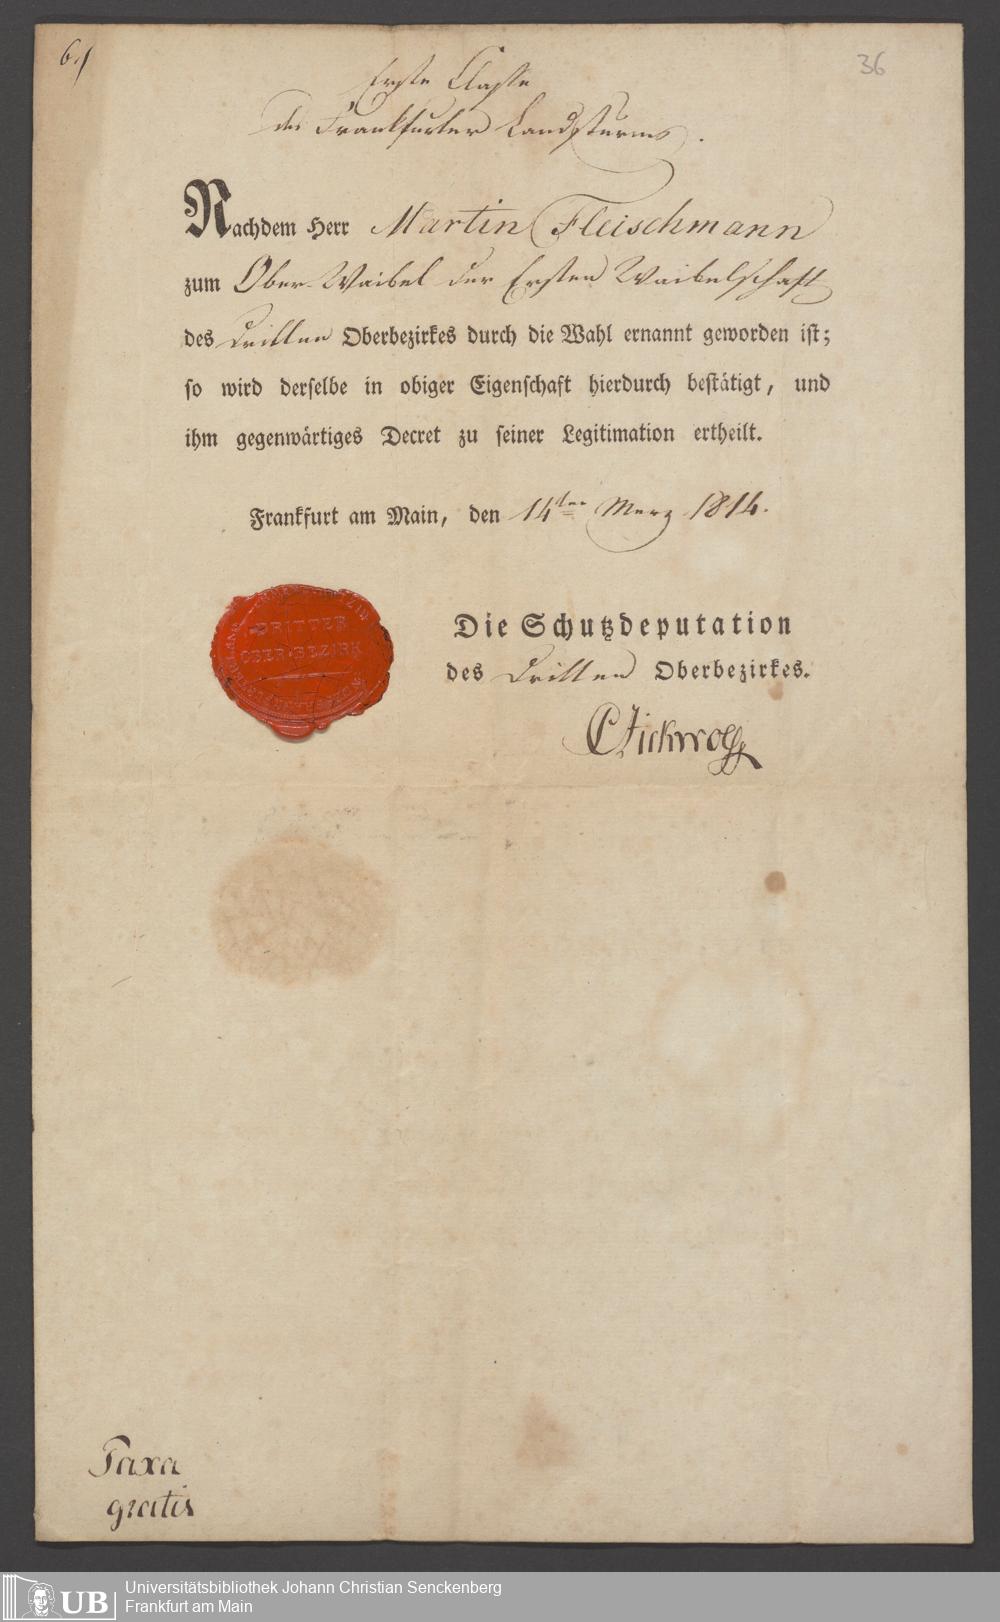 36
Erste Classe
des Frankfurter Landsturms.
Nachdem Herr Martin Fleischmann
zum Ober-Waibel der Ersten Waibelschaft
des Dritten Oberbezirkes durch die Wahl ernannt geworden ist;
so wird derselbe in obiger Eigenschaft hierdurch bestätigt, und
ihm gegenwärtiges Decret zu seiner Legitimation ertheilt.
Frankfurt am Main, den 14ten Merz 1814.
DRITTER
OBER-BEZIRK
Die Schutzdeputation
des Dritten Oberbezirkes.
Taxa
gratis
UB
Universitätsbibliothek Johann Christian Senckenberg
Frankfurt am Main